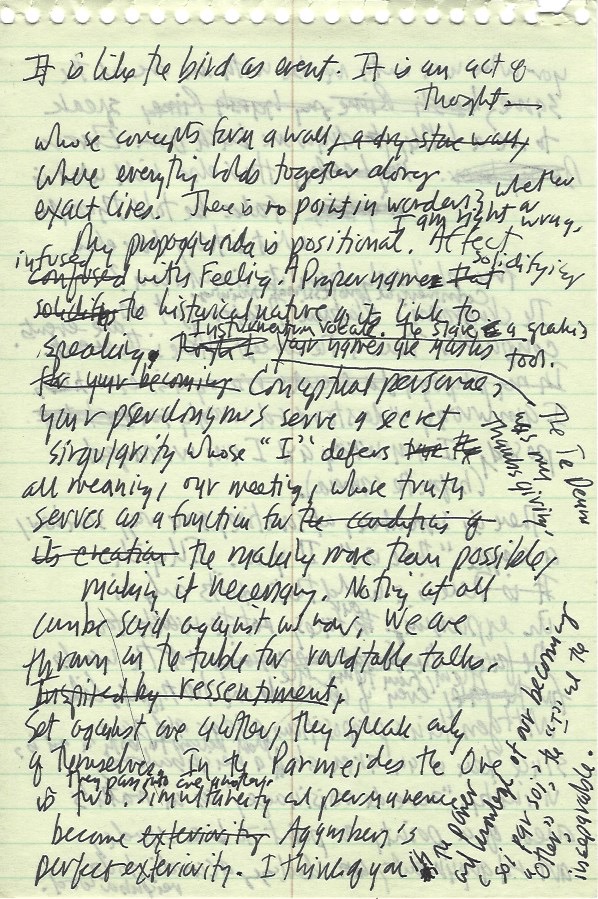 It is like the bird as event. It is an act of
thought —
whose concepts form a wall, a dry stone wall,
where everything holds together along
exact lines. There is no point in wondering whether
I am right or wrong.
My propaganda is positional. Affect
infused
confused with Feeling. A Proper name that solidifying
solidifies the historical nature is its link to
Instrumentum vocale. The slave is a speaking
tool.
speaking. your names are masks
for your becoming Conceptual personae,
your pseudonyms serve a secret
singularity whose "I" defers
all meaning, our meeting, whose truth
serves as a function for the conditions of
its creation the making more than possible,
making it necessary. Nothing at all
can be said against us now. We are
thrown on the table for roundtable talks.
Inspired by ressentiment,
Set against one another, they speak only
of themselves. In the Parmeides the One
they pass into one another
is two simultaneity and permanence
become exteriority Agamben's
perfect exteriority. I think of you
The Te Deum
was my
thanksgiving,
in a power
my knowledge of our becoming
"other" the "I" and the
inseparable.